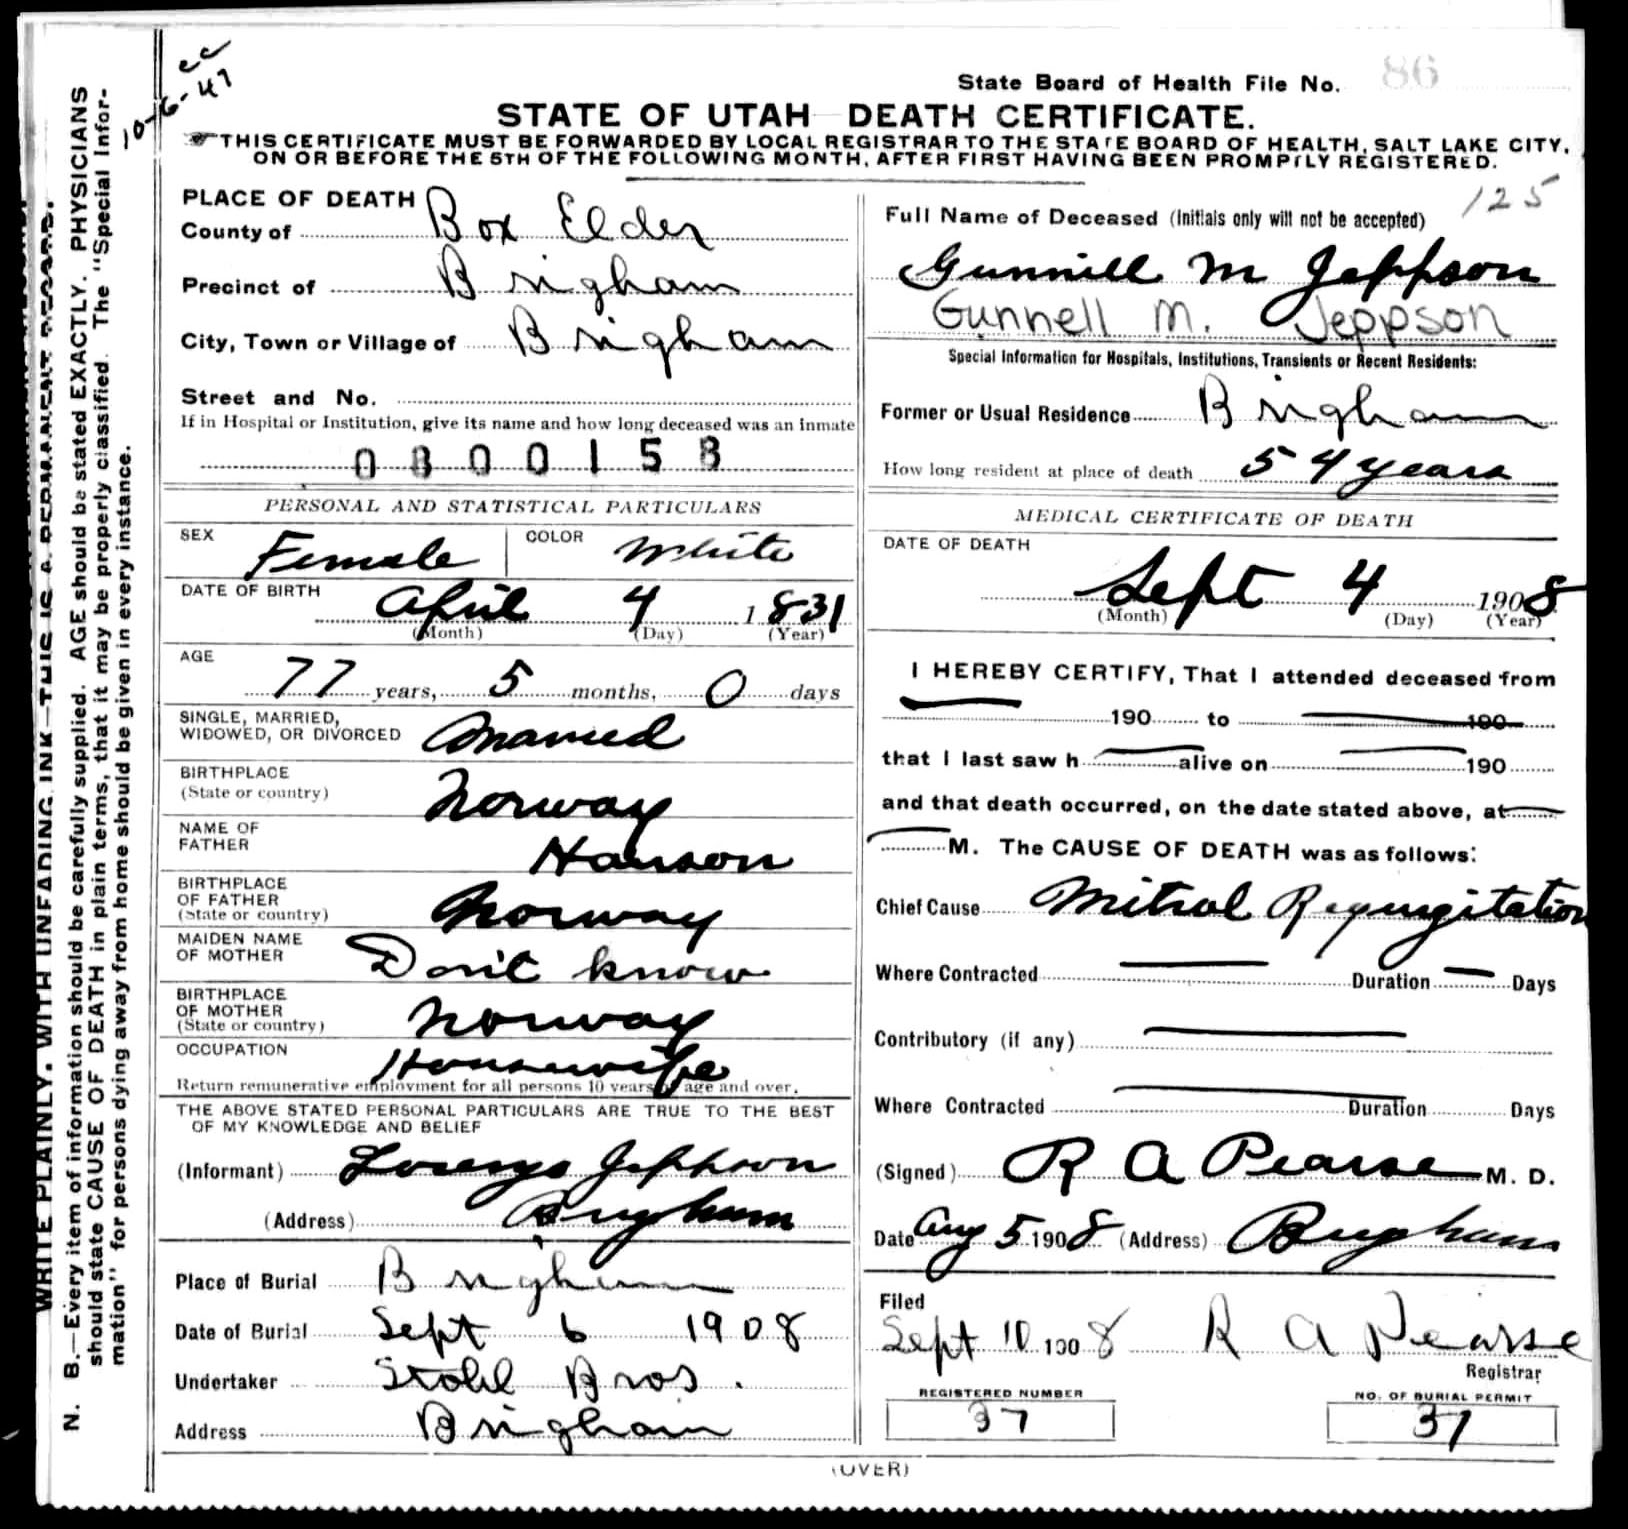 cc
10-6-47
State Board of Health File No. 86
STATE OF UTAH DEATH CERTIFICATE.
☞ THIS CERTIFICATE MUST BE FORWARDED BY LOCAL REGISTRAR TO THE STATE BOARD OF HEALTH, SALT LAKE CITY,
ON OR BEFORE THE 5TH OF THE FOLLOWING MONTH, AFTER FIRST HAVING BEEN PROMPTLY REGISTERED.
WRITE PLAINLY. WITH UNFADING INK—THIS IS A PERMANENT RECORD.
N. B.—Every item of information should be carefully supplied. AGE should be stated EXACTLY. PHYSICIANS
should state CAUSE OF DEATH in plain terms, that it may be properly classified. The "Special Infor-
mation" for persons dying away from home should be given in every instance.
PLACE OF DEATH
County of Box Elder
Precinct of Brigham
City, Town or Village of Brigham
Street and No.
If in Hospital or Institution, give its name and how long deceased was an inmate
0800158
PERSONAL AND STATISTICAL PARTICULARS
SEX Female COLOR White
DATE OF BIRTH April 4 1831
(Month) (Day) (Year)
AGE 77 years, 5 months, 0 days
SINGLE, MARRIED,
WIDOWED, OR DIVORCED Married
BIRTHPLACE
(State or country) Norway
NAME OF
FATHER Hanson
BIRTHPLACE
OF FATHER
(State or country) Norway
MAIDEN NAME
OF MOTHER Don't know
BIRTHPLACE
OF MOTHER
(State or country) Norway
OCCUPATION Housewife
Return remunerative employment for all persons 10 years of age and over.
THE ABOVE STATED PERSONAL PARTICULARS ARE TRUE TO THE BEST
OF MY KNOWLEDGE AND BELIEF
(Informant) Lorenzo Jephson
(Address) Brigham
Place of Burial Brigham
Date of Burial Sept 6 1908
Undertaker Stohl Bros.
Address Brigham
125
Full Name of Deceased (Initials only will not be accepted)
Gunnill M Jeppson
Gunnell M. Jeppson
Special Information for Hospitals, Institutions, Transients or Recent Residents:
Former or Usual Residence Brigham
How long resident at place of death 54 years
MEDICAL CERTIFICATE OF DEATH
DATE OF DEATH
Sept 4 1908
(Month) (Day) (Year)
I HEREBY CERTIFY, That I attended deceased from
190 to 190
that I last saw h alive on 190
and that death occurred, on the date stated above, at
M. The CAUSE OF DEATH was as follows:
Chief Cause Mitral Regurgitation
Where Contracted Duration Days
Contributory (if any)
Where Contracted Duration Days
(Signed) R A Pearse M. D.
Date Aug 5 1908 (Address) Brigham
Filed
Sept 10 1908 R A Pearse
Registrar
REGISTERED NUMBER
37
NO. OF BURIAL PERMIT
37
(OVER)